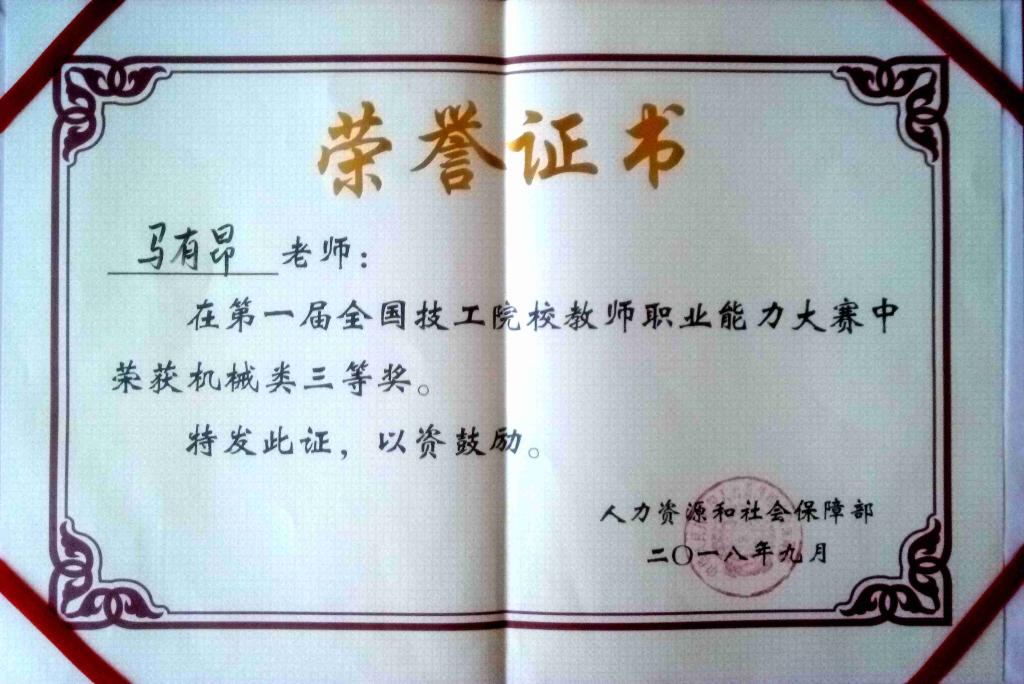 荣誉证书
马有昂 老师：
在第一届全国技工院校教师职业能力大赛中
荣获机械类三等奖。
特发此证，以资鼓励。
人力资源和社会保障部
二〇一八年九月